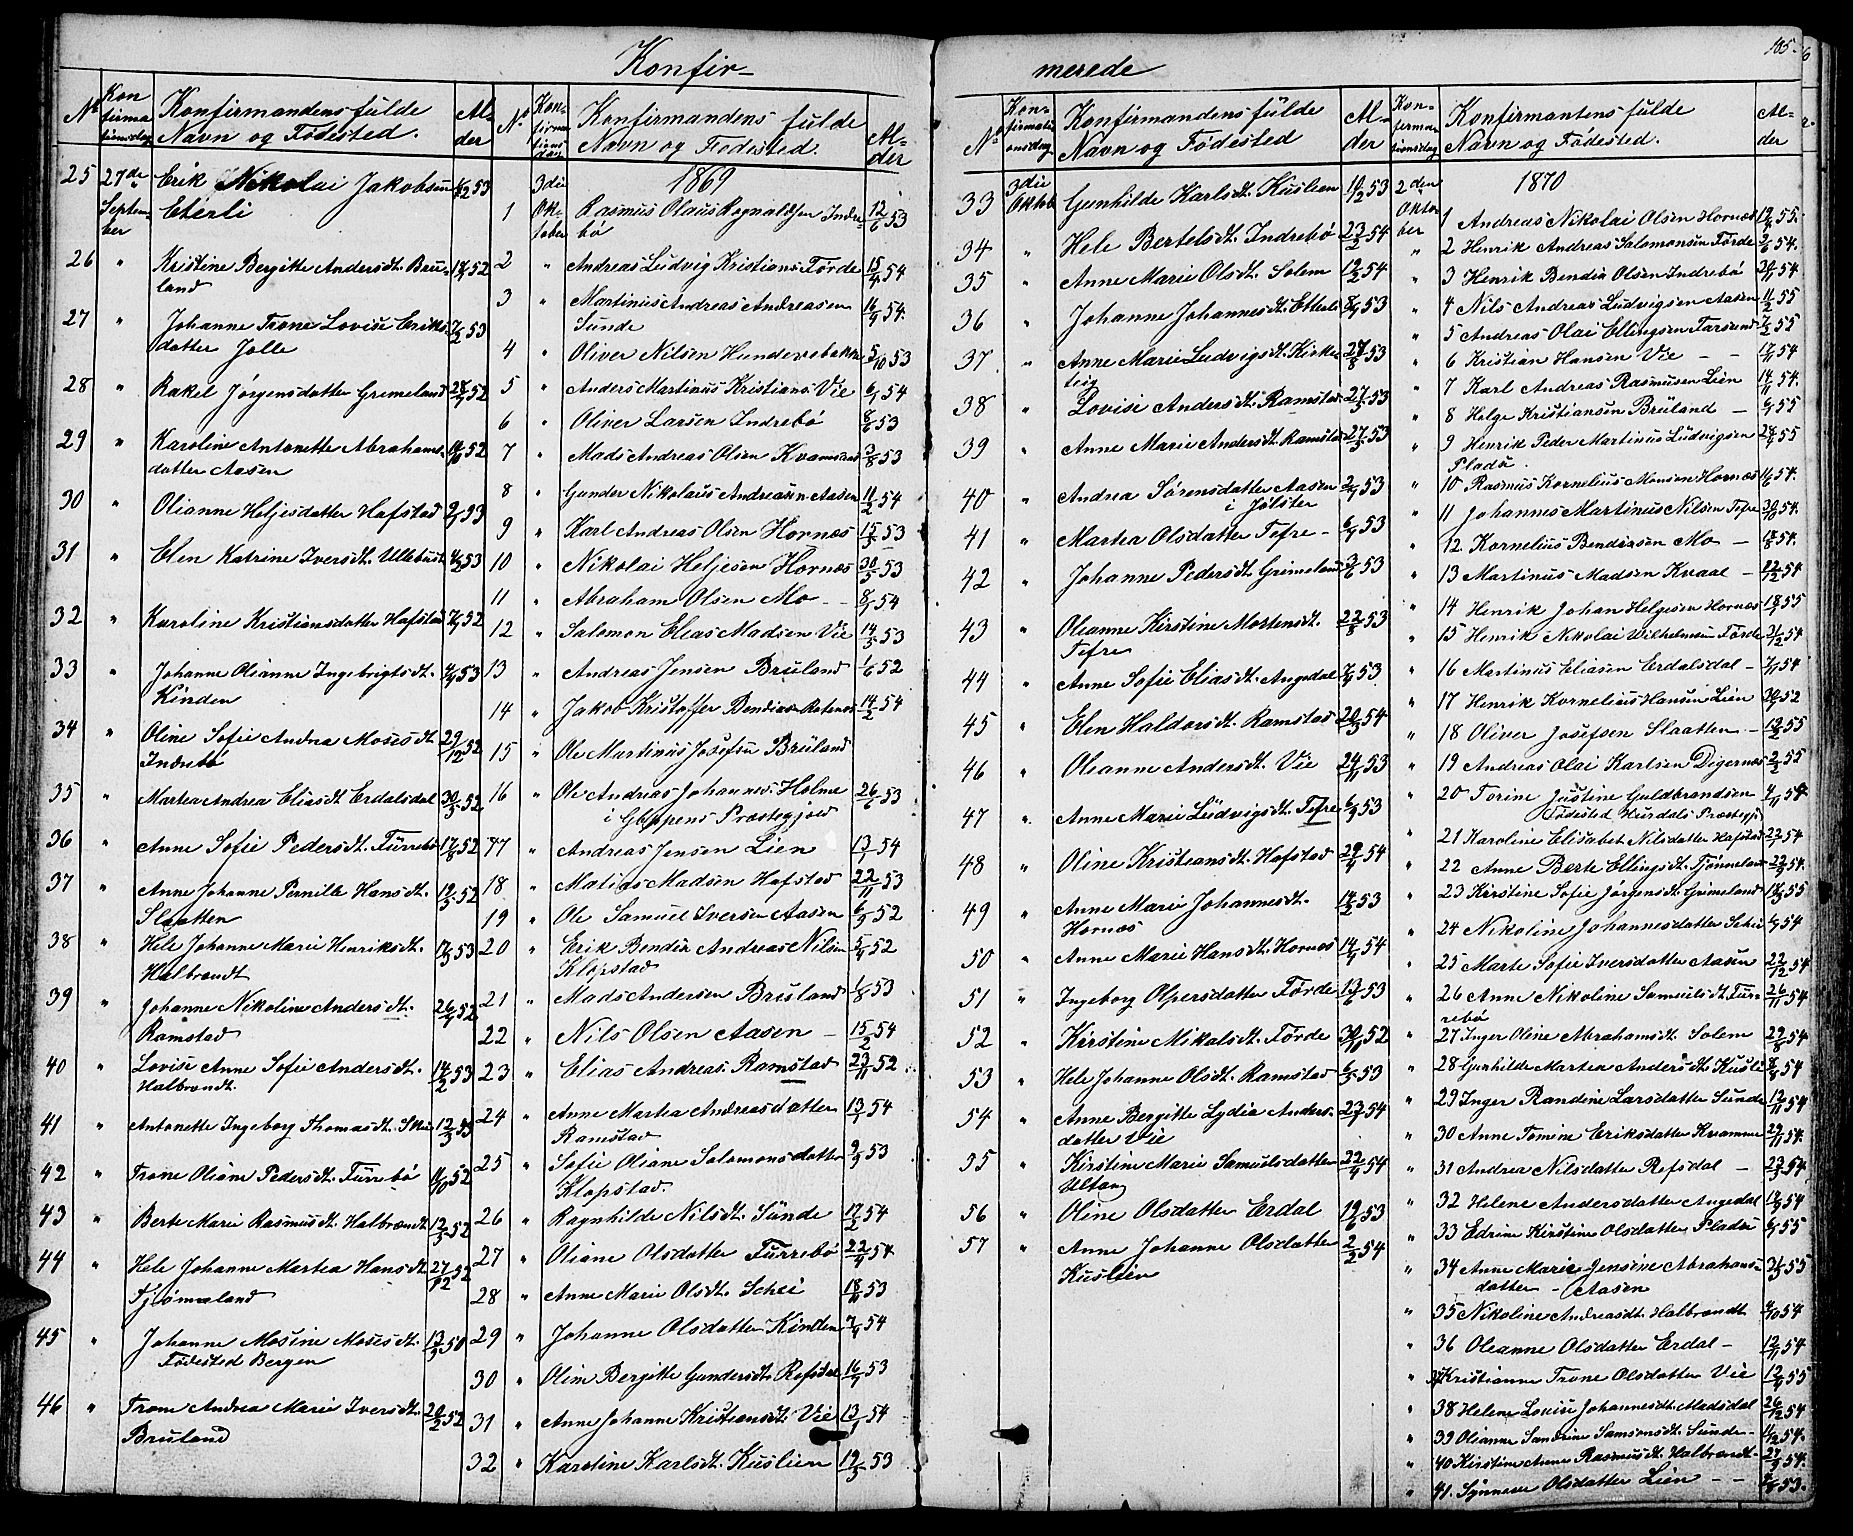 105.
Konfir-
merede
No Konfirmationsdag Konfirmandens fulde Navn og Fødested. Alder
25 27de September Erik Nikolai Jakobsen 53
Eterli
26 " Kristine Bergitte Andersdt. Bru- 52
land
27 " Johanne Trone Lovise Eriks 7/2 53
datter Jolle
28 " Rakel Jørgensdatter Grimeland 52
29 " Karoline Antonette Abrahams 52
datter Aasen
30 " Olianne Heljesdatter Hafstad 53
31 " Elen Katrine Iversdt. Ullebust 53
32 " Karoline Kristiansdatter Hafstad 52
33 " Johanne Olianne Ingebrigtsdt. 53
Kinden
34 " Oline Sofie Andrea Mosesdt 29/12 52
Indrebø
35 " Martea Andrea Eliasdt Erdalsdal 30/5 52
36 " Anne Sofie Pedersdt. Furrebø 17/8 52
37 " Anne Johanne Pernille Hansdt. 12/3 52
Slaatten
38 " Hele Johanne Marie Henriksdt. 53
Halbrendt
39 " Johanne Nikoline Andersdt. 52
Ramstad
40 " Lovise Anne Sofie Andersdt. 14/2 53
Halbrendt.
41 " Antonette Ingeborg Thomasdt. Skei 12/3 53
42 " Trone Oliane Pedersdt. Furrebø 52
43 " Berte Marie Rasmusdt. Halbrendt 12/3 52
44 " Hele Johanne Martea Hansdt 27/12 52
Tjømeland
45 " Johanne Mosine Mosesdt. 13/3 50
Fødested Bergen
46 " Trone Andrea Marie Iversdt. 20/2 52
Bruland
No Konfirmationsdag Konfirmandens fulde Navn og Fødested. Alder
3die Oktober 1869
1 Rasmus Olaus Rognaldsen Indre- 12/6 53
bø
2 " Andreas Ludvig Kristians. Førde 15/4 54
3 " Martinus Andreas Andreasen 16/4 54.
Sunde
4 " Oliver Nilsen Hundvebakke 5/10 53
5 " Anders Martinus Kristians. Vie 6/1 54
6 " Oliver Larsen Indrebø 8/6 53
7 " Mads Andreas Olsen Kvamme 3/8 53
8 " Gunder Nikolaus Andreasen Aasen 11/2 54
9 " Karl Andreas Olsen Hornæs 15/3 53
10 " Nikolai Heljesen Hornæs 30/5 53
11 " Abraham Olsen Mo - - 8/1 54
12 " Salomon Elias Madsen Vie 14/5 53
13 " Andreas Jensen Bruland 1/6 52
14 " Jakob Kristoffer Bendias. Rotenes 14/2 54
15 " Ole Martinus Josefsen Bruland
16 " Ole Andreas Johannes. Holme 26/6 53
i Gloppens Præstegjeld
17 " Andreas Jensen Lien 13/1 54
18 " Matias Madsen Hafstad 22/11 53
19 " Ole Samuel Iversen Aasen 6/9 52
20 " Erik Bendix Andreas Nilsen 5/4 52
Klopstad
21 " Mads Andersen Bruland 1/8 53
22 " Nils Olsen Aasen - 15/2 54
23 " Elias Andreas. Ramstad 23/11 52
24 " Anne Martea Andreasdatter 13/1 54
Ramstad
25 " Sofie Oliane Salomonsdatter 9/9 53
Klopstad.
26 " Ragnhilde Nilsdt. Sunde 17/3 54
27 " Oliane Olsdatter Furrebø 22/4 54
28 " Anne Marie Olsdt. Schei 18/11 53
29 " Johanne Olsdatter Kinden 7/4 54
30 " Oline Bergitte Gundersdt. Refsdal 16/4 53
31 " Anne Johanne Kristiansdt. Vie 13/1 54
32 " Karoline Karlsdt. Kuslien 19/3 53
No Konfirmationsdag Konfirmandens fulde Navn og Fødested Alder
33 3die Oktob. Gunhilde Karlsdt. Kuslien 19/2 53
34 " Hele Bertelsdt. Indrebø 23/2 54
35 " Anne Marie Olsdt. Solem 19/2 54
36 " Johanne Johannesdt. Etterli 53
37 " Anne Marie Ludvigsdt. Kirke 53
teig
38 " Lovise Andersdt. Ramstad 27/3 53
39 " Anne Marie Andersdt. Ramstad 27/3 53
40 " Andrea Sørensdatter Aasen 53
i Jølster
41 " Martea Olsdatter Tefre - 53
42 " Johanne Pedersdt. Grimeland 3/6 53
43 " Olianne Kirstine Mortensdt. 22/8 53
Tefre
44 " Anne Sofie Eliasdt. Angedal 53
45 " Elen Haldorsdt. Ramstad 20/3 54
46 " Olianne Andersdt. Vie 24/11 53
47 " Anne Marie Ludvigsdt. Tefre 53
48 " Oline Kristiansdt. Hafstad 54
49 " Anne Marie Johannesdt. 53
Hornæs
50 " Anne Marie Hansdt. Hornæs 14/4 54
51 " Ingeborg Olpersdatter Førde 53
52 " Kirstine Mikalsdt. Førde 30/11 52
53 " Hele Johanne Olsdt. Ramstad 53
54 " Anne Bergitte Lydia Anders- 54
datter Vie
55 " Kirstine Marie Samuelsdatter 22/4 54
Ultang
56 " Oline Olsdatter Erdal 19/6 53
57 " Anne Johanne Olsdatter 2/2 54
Kuslien
Konfirmationsdag Konfirmantens fulde Navn og Fødested. Alder
2den Oktober 1870
1 Andreas Nikolai Olsen Hornæs 55.
" 2 Henrik Andreas Salomonsen Førde 54.
" 3 Henrik Bendix Olsen Indrebø 54
" 4 Nils Andreas Ludvigsen Aasen 11/2 55
" 5 Andreas Olai Ellingsen Farsund 7/2 55
" 6 Kristian Hansen Vie - - 54
" 7 Karl Andreas Rasmusen Lien 14/11 54.
" 8 Helge Kristiansen Bruland - 55
" 9 Henrik Peder Martinus Ludvigsen 55
Pladsø.
" 10 Rasmus Kornelius Monsen Hornæs 54.
" 11 Johannes Martinus Nilsen Tefre 54.
" 12 Kornelius Bendixsen Mo - 54.
" 13 Martinus Madsen Kvaal - 22/12 54
" 14 Henrik Johan Helgesen Hornæs 55
" 15 Henrik Nikolai Wilhelmsen Førde 54
" 16 Martinus Eliasen Erdalsdal - 54
" 17 Henrik Kornelius Hansen Lien 52
" 18 Oliver Josefsen Slaatten - 55
" 19 Andreas Olai Karlsen Digernæs 2/2 55
" 20 Torine Justine Guldbrandsen 4/11 54
(Fødested Hurdals Præstegj)
" 21 Karoline Elisabet Nilsdatter Hafstad 54
" 22 Anne Berte Ellingsdt. Tjønneland 54.
" 23 Kirstine Sofie Jørgensdt. Grimeland 55
" 24 Nikoline Johannesdatter Schei 54
" 25 Marte Sofie Iversdatter Aasen 22/12 54
" 26 Anne Nikoline Samuelsdt. Fur- 26/11 54
rebø
" 27 Inger Oline Abrahamsdt. Solem 22/8 54
" 28 Gunhilde Martea Andersdt Kusli 54
" 29 Inger Randine Larsdatter Sunde 12/11 54
" 30 Anne Tomine Eriksdatter Kvamme 29/11 54.
" 31 Andrea Nilsdatter Refsdal - 54.
" 32 Helene Andersdatter Angedal 54
" 33 Edrine Kirstine Olsdatter Pladsø 55
" 34 Anne Marie Jensine Abrahams- 31/3 55
datter - Aasen
" 35 Nikoline Andreasdt. Halbrendt 54
" 36 Oleanne Olsdatter Erdal - 12/11 54
" 37 Kristianne Trone Olsdatter Vie 55
" 38 Helene Lovise Johannesdt. Madsdal 26/12 54
" 39 Olianne Sandrine Samsonsdt. Sunde - 54.
" 40 Kirstine Anne Rasmusdt. Halbrendt - 27/9 54.
" 41. Synneve Olsdatter Lien - - 53.